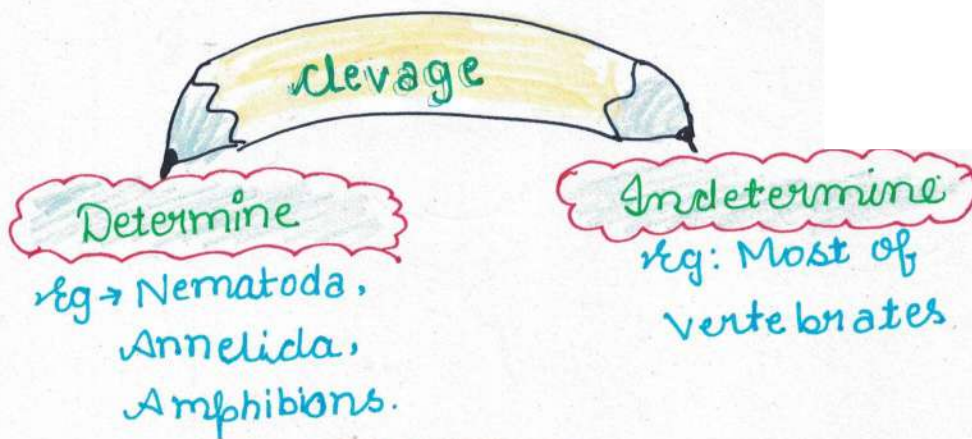 Clevage
Determine
Eg → Nematoda,
Annelida,
Amphibions.
Indetermine
Eg: Most of
vertebrates